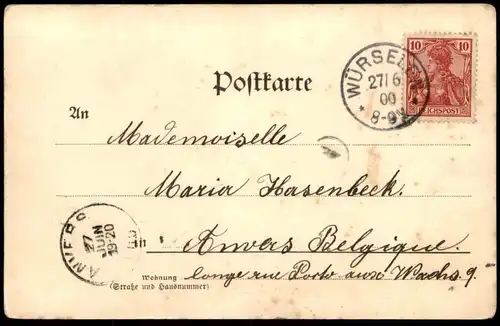 10 10
REICHSPOST
WÜRSELEN
27/6
00
* 8-9V. *
Postkarte
An
Mademoiselle
Maria Hasenbeck.
ANVERS
27
JUIN
19-20
in
Anvers Belgique.
Wohnung
(Straße und Hausnummer)
longe rue Porte aux Wachs 9.